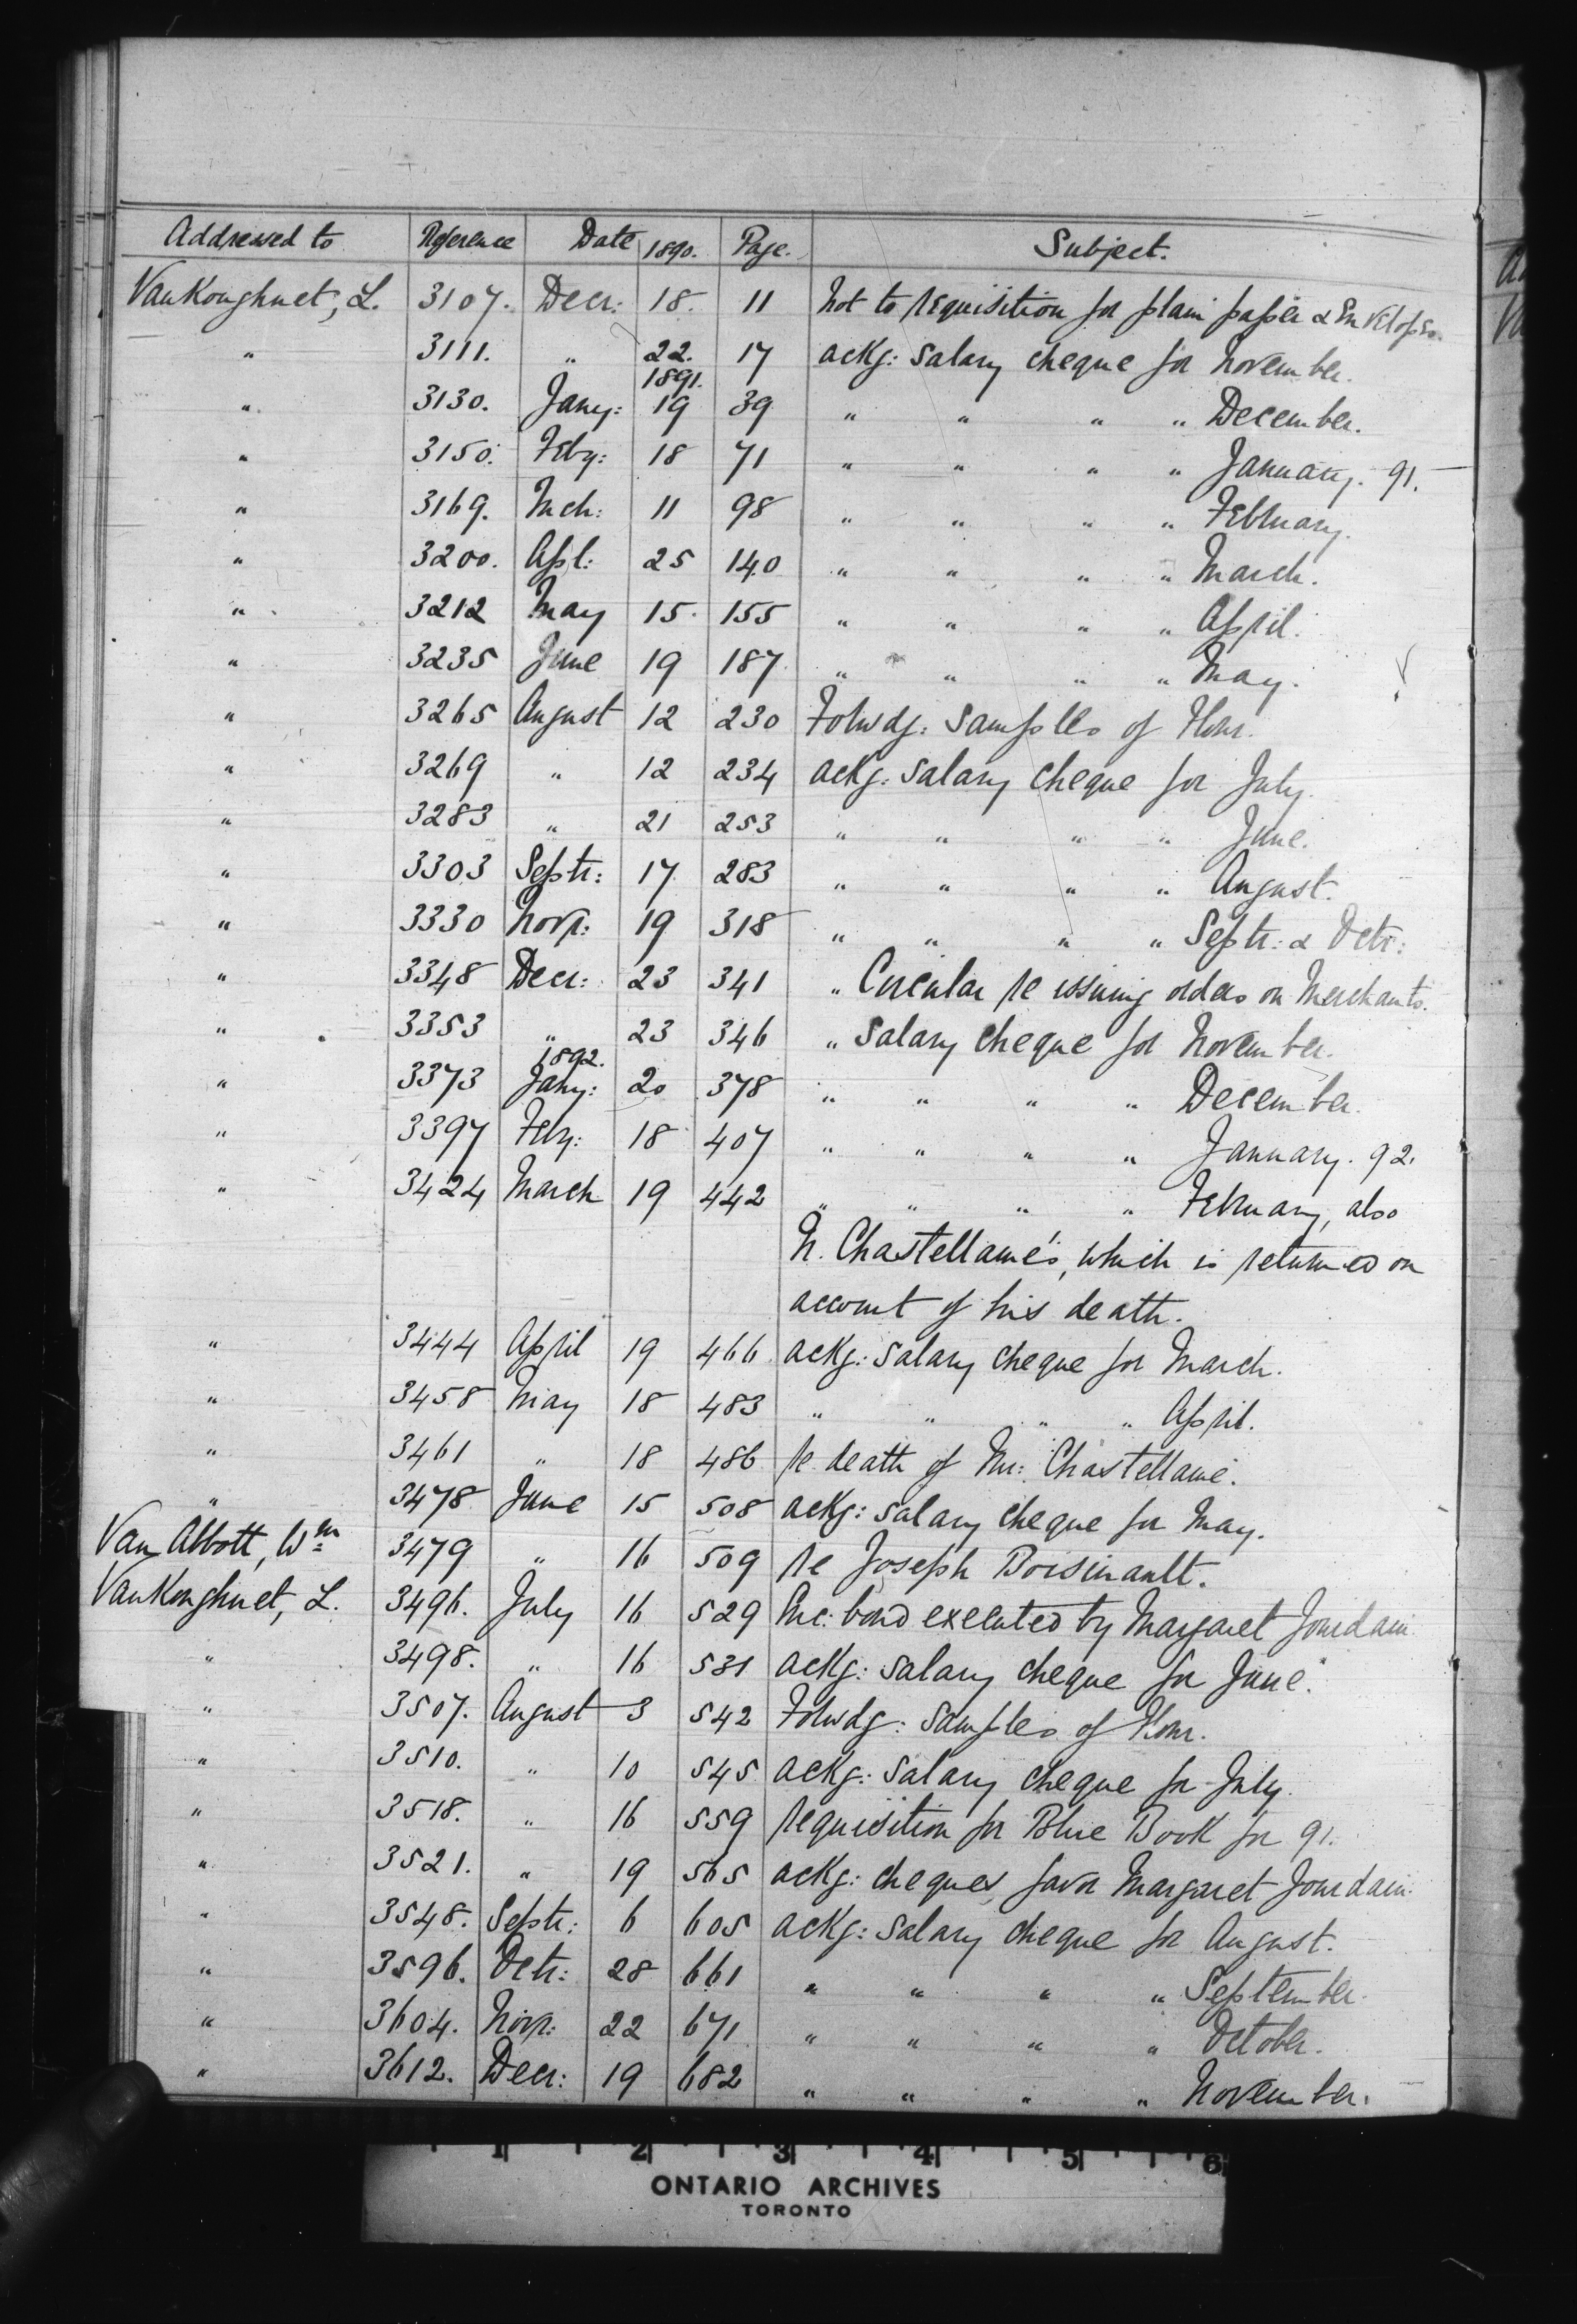 Addressed to Reference Date 1890. Page. Subject.
VanKoughnet, L. 3107. Decr: 18. 11 Not to requisition for plain paper & Envelopes.
" 3111. " 22. 17 ackg: salary cheque for November.
1891.
" 3130. Jany: 19 39 " " " " December.
" 3150. Feby: 18 71 " " " " January. 91.
" 3169. Mch: 11 98 " " " " February.
" 3200. Apl: 25 140 " " " " March.
" 3212 May 15. 155 " " " " April.
" 3235 June 19 187 " " " " May.
" 3265 August 12 230 Forwdg: samples of flour.
" 3269 " 12 234 ackg: salary cheque for July.
" 3283 " 21 253 " " " " June.
" 3303 Septr: 17 283 " " " " August.
" 3330 Novr: 19 318 " " " " Septr: & Octr:
" 3348 Decr: 23 341 " Circular re issuing orders on Merchants.
" 3353 " 23 346 " Salary Cheque for November.
1892.
" 3373 Jany: 20 378 " " " " December.
" 3397 Feby: 18 407 " " " " January. 92.
" 3424 March 19 442 " " " " February, also
N. Chastellaine's, which is returned on
account of his death.
" 3444 April 19 466 ackg: salary cheque for March.
" 3458 May 18 483 " " " " April.
" 3461 " 18 486 re death of Mr: Chastellaine.
" 3478 June 15 508 ackg: salary cheque for May.
Van Abbott, Wm 3479 " 16 509 re Joseph Boisinault.
VanKoughnet, L. 3496. July 16 529 Enc: bond executed by Margaret Jourdain
" 3498. " 16 531 ackg: salary cheque for June.
" 3507. August 3 542 Forwdg: samples of flour.
" 3510. " 10 545 ackg: salary cheque for July.
" 3518. " 16 559 requisition for Blue Book for 91.
" 3521. " 19 565 ackg: cheques favor Margaret Jourdain.
" 3548. Septr: 6 605 ackg: salary cheque for August.
" 3596. Octr: 28 661 " " " " September.
" 3604. Novr: 22 671 " " " " October.
" 3612. Decr: 19 682 " " " " November.
1 2 3 4 5 6
ONTARIO ARCHIVES
TORONTO